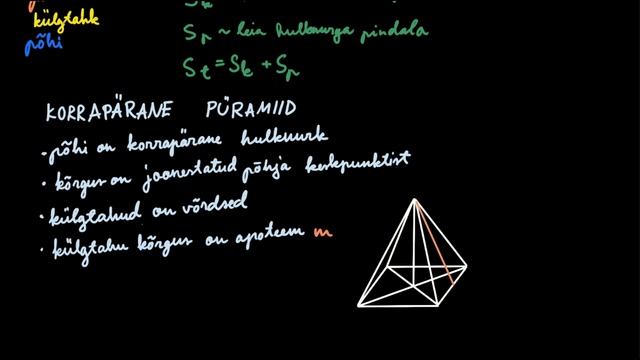 külgtahk
põhi
S_k
S_p ~ leia hulknurga pindala
S_t = S_k + S_p
KORRAPÄRANE PÜRAMIID
• põhi on korrapärane hulknurk
• kõrgus on joonestatud põhja keskpunktist
• külgtahud on võrdsed
• külgtahu kõrgus on apoteem m